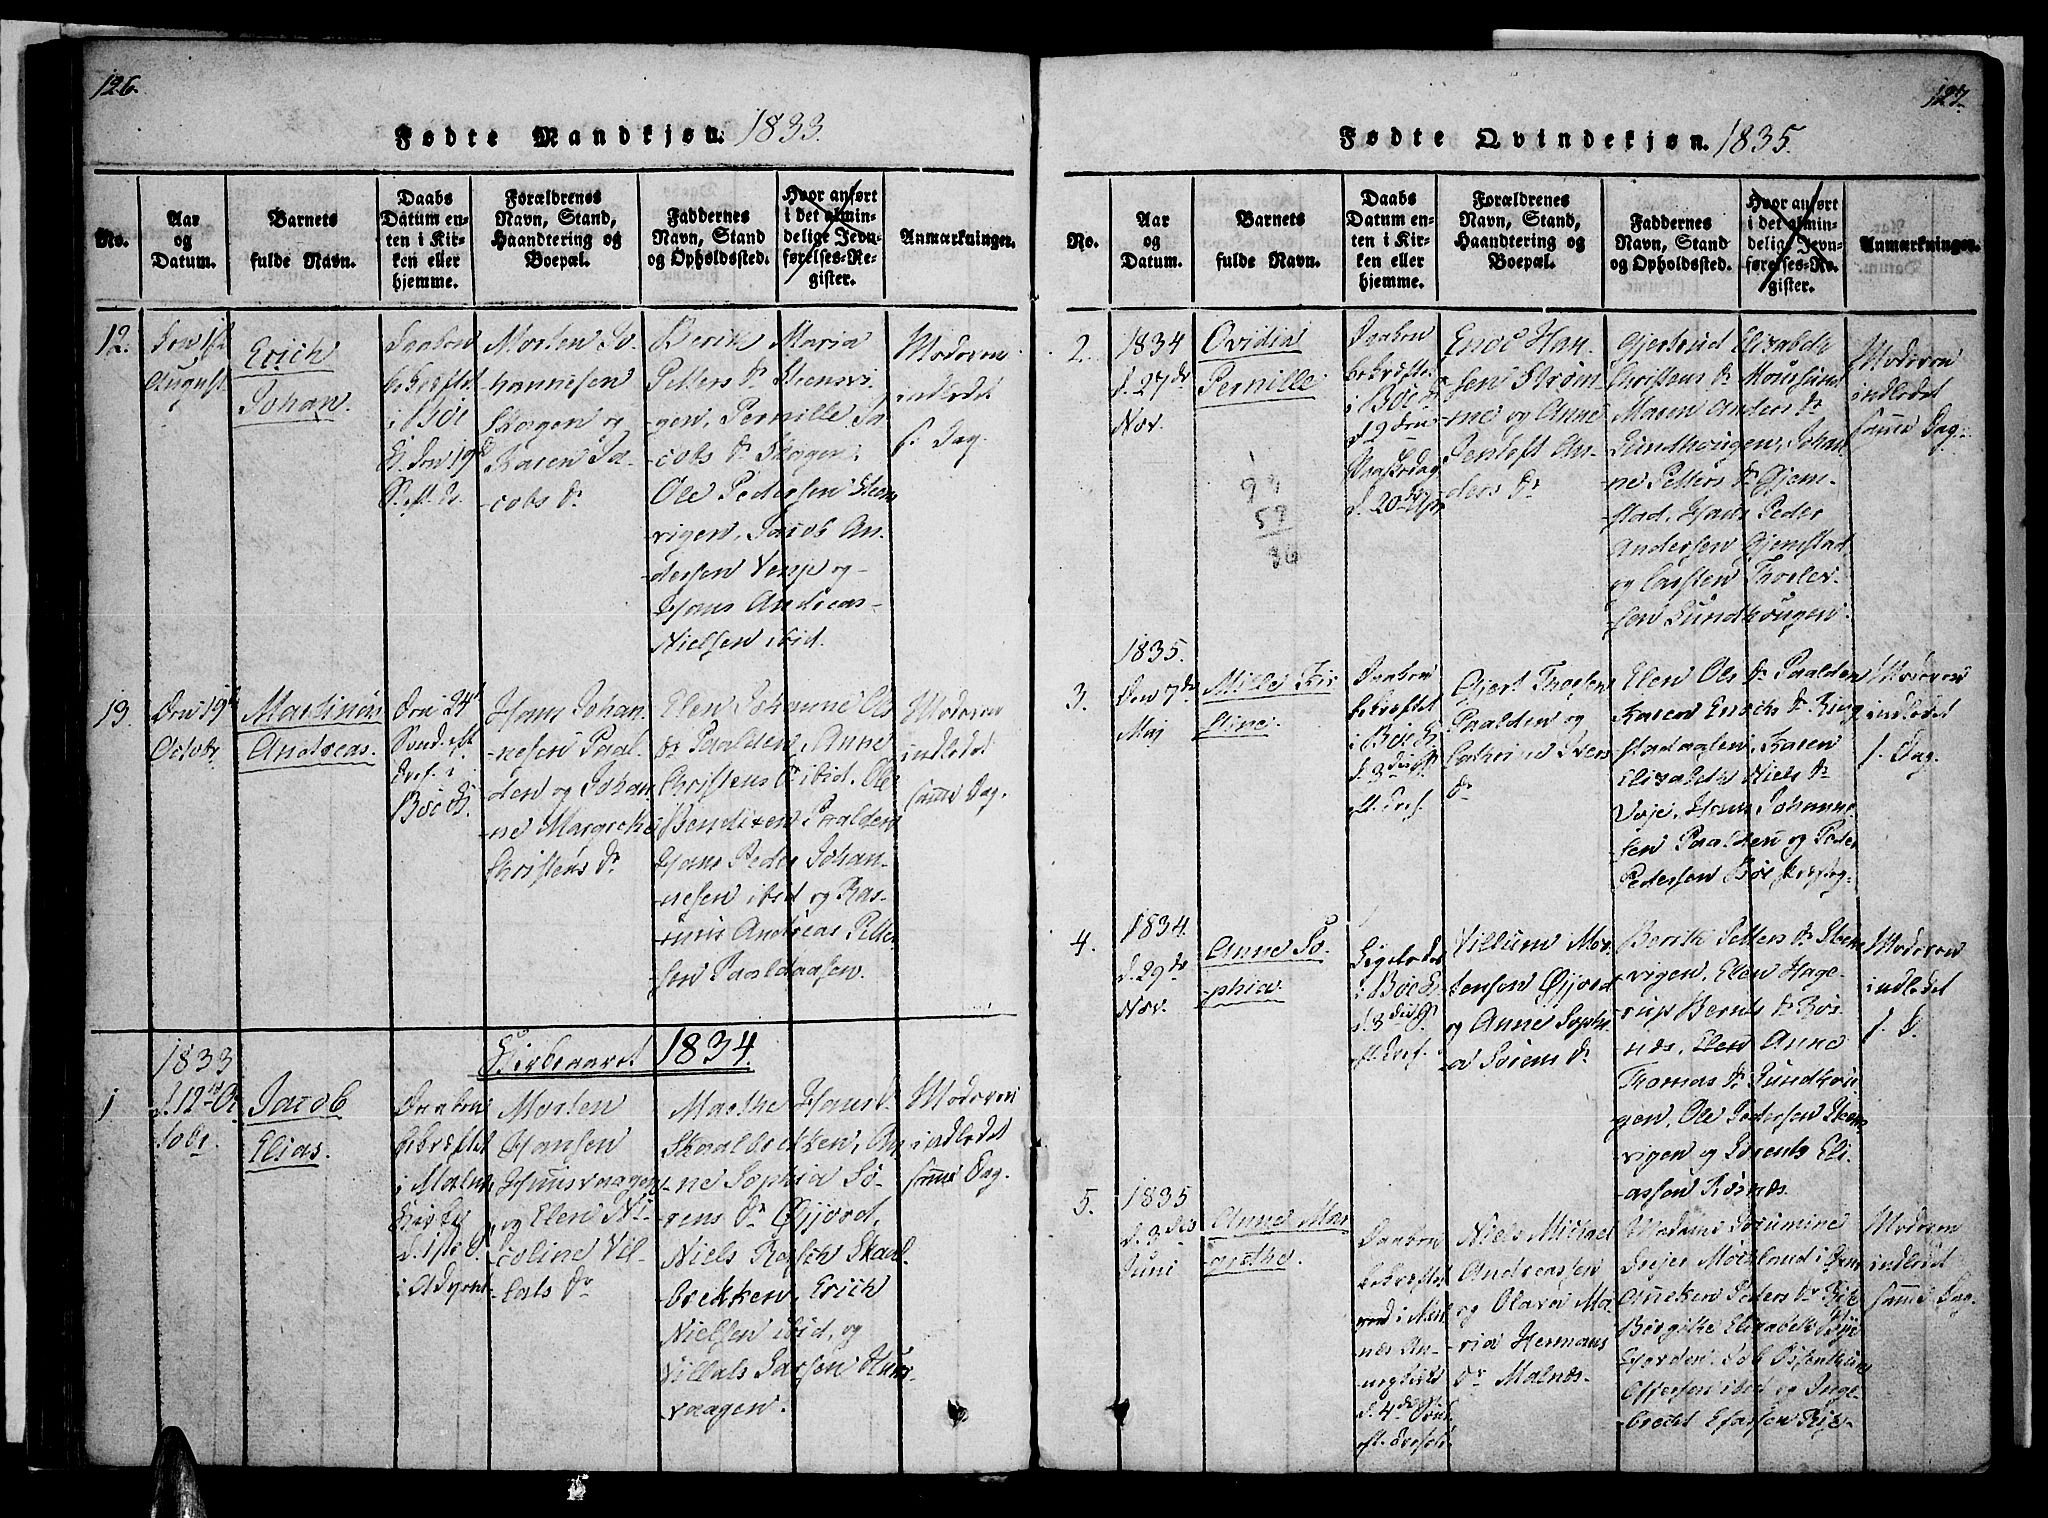 126.
Fødte Mandkjøn. 1833.
No.
Aar
og
Datum.
Barnets
fulde Navn.
Daabs
Datum en-
ten i Kir-
ken eller
hjemme.
Forældrenes
Navn, Stand,
Haandtering og
Boepæl.
Faddernes
Navn, Stand
og Opholdssted.
Hvor anført
i det almin-
delige Jevn-
førelses-Re-
gister.
Anmærkninger.
12.
August
Erich
Johan.
Daaben
bekræftet
i Böe
K. den 19
Morten Jo-
hannesen
Skogen og
Karen Ja-
cobs Dr
Berith Maria
Petters Dr Steensvi-
gen, Pernille Ja-
cobs Dr Skogen,
Ole Pedersen Steen
vigen, Jacob An-
dersen Vemp og
Hans Andreas
Nielsen ibid.
Moderen
indledet
s. Dag.
13.
Den 19
Octobr
Martinus
Andreas.
Den 24
Sönd. eft
Tref. i
Böe K.
Hans Johan-
nesen Paal-
den og Johan
ne Margrethe
Christens Dr
Elen Johanne Ols
Dr Paalden, Anne
Christens Dr ibid. Ole
Bendixen Paalden
Hans Peder Johan-
nesen ibid og Ras-
mus Andreas Petter
sen
Moderen
indledet
samme Dag.
Kirkeaaret 1834.
1
1833
d. 12te Oc
tobr
Jacob
Elias.
Daaben
bekræftet
i Malnæ
Kirke
d. 1ste S
i Advent
Morten
Hansen
Huusvaagen
og Elen Ni-
coline Vil-
lals Dr
Marthe Hans D.
Skaalbrekken, An-
ne Sophia Sö-
rens Dr Öjjord,
Niels Rasch Skaal
brekken, Erich
Nielsen ibid, og
Villals Larsen Huus-
vaagen.
Moderen
indledet
samme Dag.
127.
Fødte Qvindekjøn. 1835.
No.
Aar
og
Datum.
Barnets
fulde Navn.
Daabs
Datum en-
ten i Kir-
ken eller
hjemme.
Forældrenes
Navn, Stand,
Haandtering og
Boepæl.
Faddernes
Navn, Stand
og Opholdssted.
Hvor anført
i det almin-
delige Jevn-
førelses-Re-
gister.
Anmærkninger.
2.
1834
d. 27de
Nov.
Ovidia
Pernille
Daaben
bekræftet
i Böe K
d 2den
Paaskedag
d. 20de Apr
Enoc Han-
sen Ström-
me og Anne
Jentoft An-
ders Dr
Gjertrud Elisabeth
Christens Dr
Maren Anders Dr
Sundhougen, Johan
ne Petters Dr Gjem-
stad, Hans Peder
Andersen Gjemstad
og Carsten Thorlev-
sen Sundhougen.
Moderen
indledet
samme Dag.
3.
1835.
Den 7de
Maj
Mille Kir
stine
Daaben
bekræftet
i Böe K
d. 3die S
eft. Tref.
Gjert Thorsen
Paalden og
Cathrine Ivers
Dr
Elen Ols Dr Paalden
Karen Enochs Dr Ring
stadaglen, Karen
Elisabeth Niels Dr
Veje, Hans Johanne-
sen Paalden og Peder
Pedersen Böe
Moderen
indledet
s. Dag.
4.
1834.
d. 29de
Nov.
Anne So-
phia
Ligeledes
i Böe K
d. 3die S
eft. Tref.
Villum Mor-
tensen Öjjord
og Anne Sophi
a Sörens Dr
Berith Petters Dr Steen
vigen, Elen Hage-
rup Bernts Dr Rös-
næs, Elen Anna
Thomas Dr Sundhou-
gen, Ole Pedersen Steen
vigen og Sörents Eli-
assen Rösnæs.
Moderen
indledet
s. D.
5.
1835
d. 3die
Juni
Anne Mar
grethe.
Daaben
bekræftet
d. 4de
Niels Michael
Andreassen
og Olava Ma-
ria Hermans
Dr Malnæs
Madame
Dreyer
Anneken Peders Dr
Birgithe Elisabeth
Efjorden.
Offersen ibid og Inge-
bregt
Moderen
indledet
samme Dag.